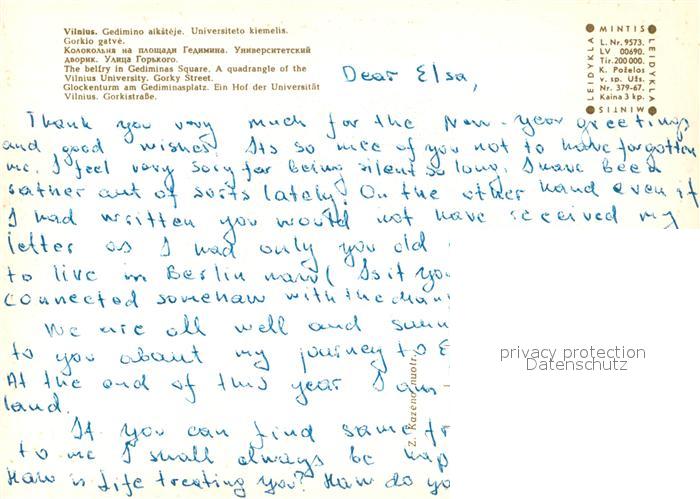 Vilnius. Gedimino aikštėje. Universiteto kiemelis.
Gorkio gatvė.
Колокольня на площади Гедимина. Университетский
дворик. Улица Горького.
The belfry in Gediminas Square. A quadrangle of the
Vilnius University. Gorky Street.
Glockenturm am Gediminasplatz. Ein Hof der Universität
Vilnius. Gorkistraße.
MINTIS
LEIDYKLA
L. Nr. 9573.
LV 00690.
Tir. 200 000.
K. Poželos
v. sp. Užs.
Nr. 379-67.
Kaina 3 kp.
MINTIS
LEIDYKLA
Dear Elsa,
Thank you very much for the New-year greetings
and good wishes! Its so nice of you not to have forgotten
me. I feel very sory for being silent so long. I have been
rather out of sorts lately. On the other hand even if
I had written you would not have received my
letter as I had only you old
to live in Berlin now (Is it yo
connected somehow with the
We are all well and
to you about my journey to
At the end of this year I am
land.
If you can find some
to me I shall always be
How is life treating you? How do yo
Z. Kazėno nuotr.
privacy protection
Datenschutz